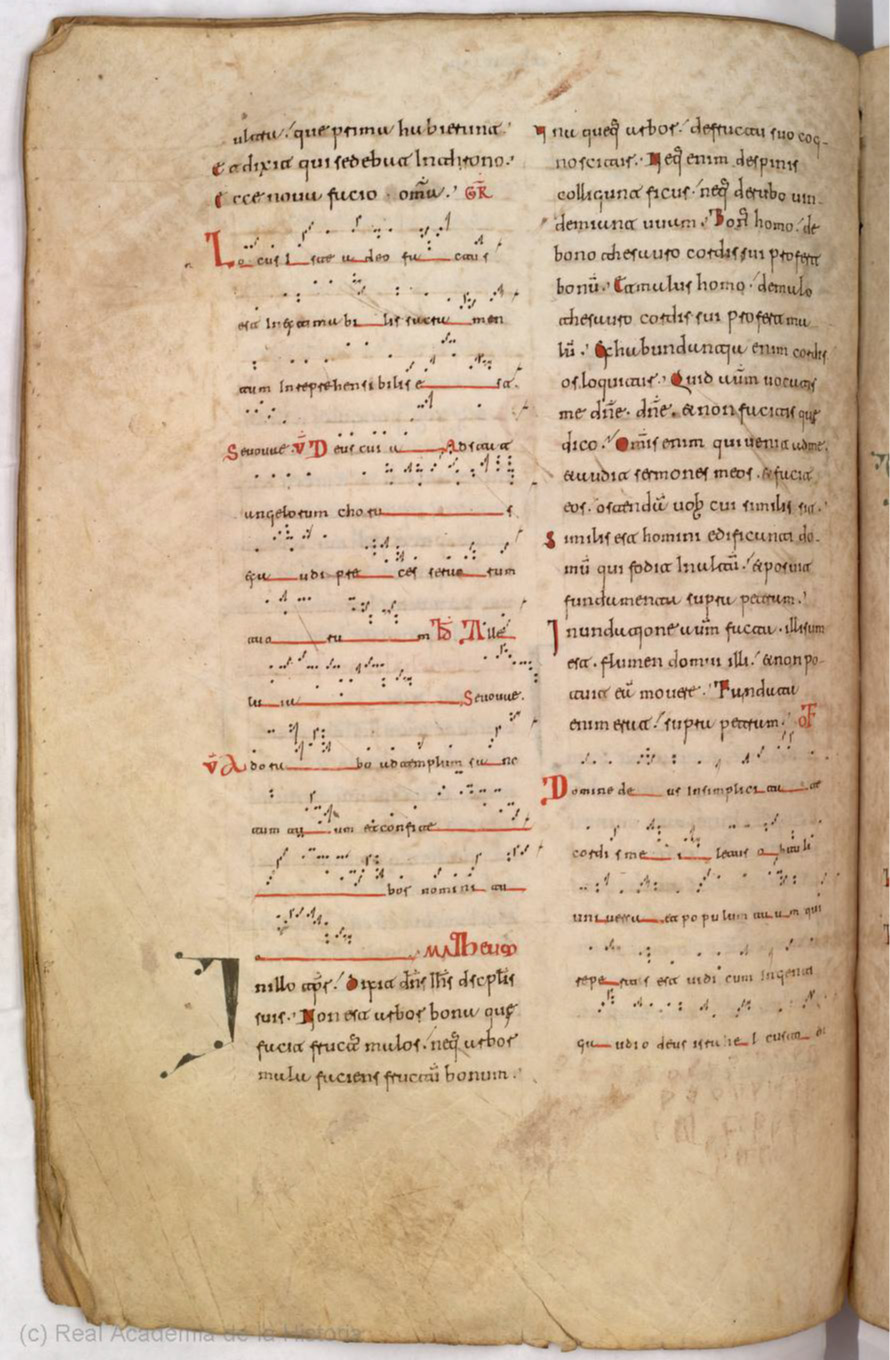 ulatra que prima habierunt.
Et dixit qui sedebat In throno.
Ecce nova facio omīa. GR̄
Locus Iste a deo factus
est Inextimabilis sacramen
tum Inreprehensibilis est.
Sevovae. V̄ Deus cui adstat
angelorum chorus
exaudi preces servorum
tuorum Alle
luia Sevovae.
V̄ Adorabo ad templum sanc
tum tuum et confite
bor nomini tu
Matheum
In illo tp̄r. Dixit dn̄s Ihs discplis
suis. Non est arbor bona que
facit fructū malos. neq̄ arbor
mala faciens fructū bonum.
Una queq̄ arbor. de fructu suo cog
noscitur. Neq̄ enim de spinis
colligunt ficus. neq̄ de rubo vin
demiant uvam. Bon̄ homo. de
bono thesauro cordis sui profert
bonū. Et malus homo. de malo
thesauro cordis sui profert ma
lū. Ex habundantja enim cordis
os loquitur. Quid autm̄ vocatis
me dn̄e. dn̄e. et non facitis que
dico. Omīs enim qui venit ad me.
et audit sermones meos. et facit
eos. ostendā vob cui similis sit.
Similis est homini edificanti do
mū qui fodit In altū. et posuit
fundamenta supra petram.
Inundatjone autm̄ facta. illisum
est. flumen domui illi. et non po
tuit eā movere. Fundata
enim erat. supra petram. OF
Domine deus In simplicitate
cordis mei letus obtuli
universa et populum tuum qui
repertus est vidi cum Ingenti
gaudio deus israhel custodi
(c) Real Academia de la Historia